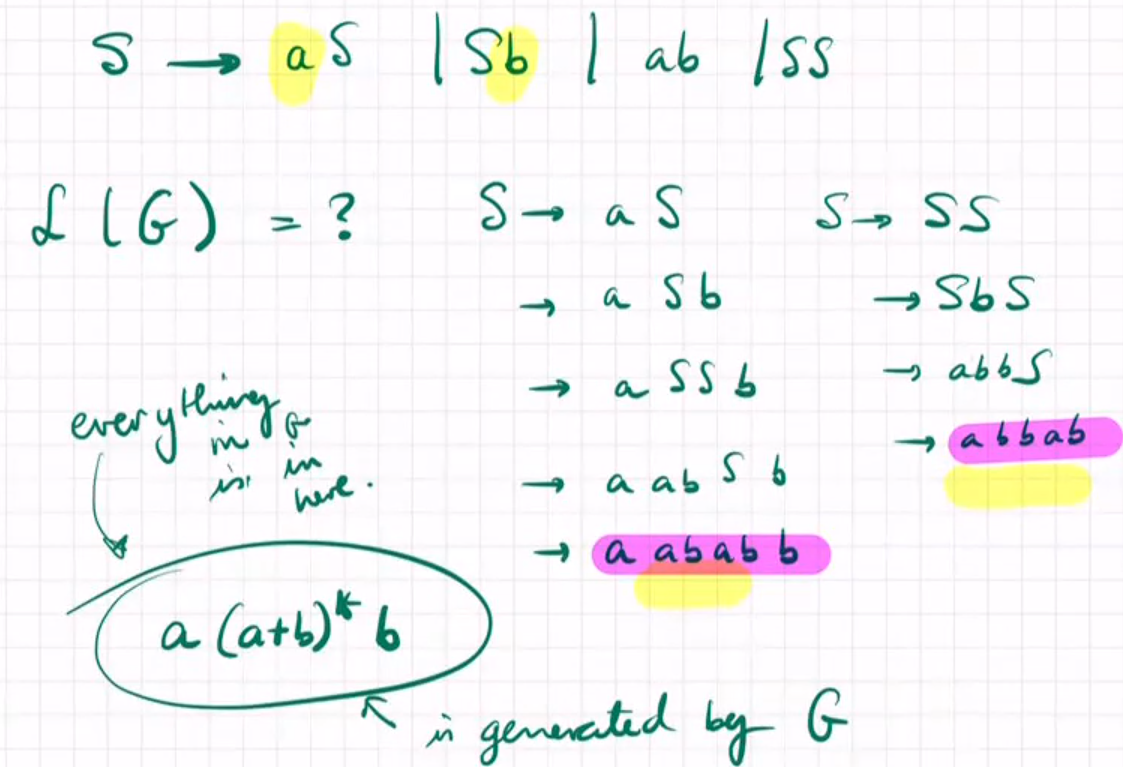 S → aS | Sb | ab | SS
L(G) = ?
S → aS
→ aSb
→ aSSb
→ aabSb
→ aababb
S → SS
→ SbS
→ abbS
→ abbab
everything
in G
is in
here.
a(a+b)* b
is generated by G